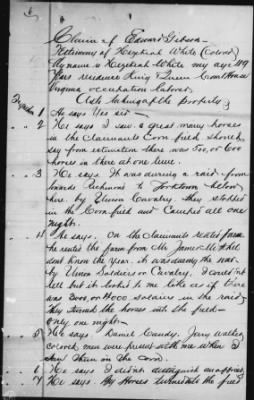 Claim of Edward Gibson
Testimony of Hezekiah White (Colored)
My name is Hezekiah White my age 49
Years residence King & Queen Court House
Virginia occupation Laborer
Ask taking of the property
Question 1 He says Yes sir
2 He says I saw a great many horses
in the Claimants Corn field should
say from estimation there was 500, or 600
horses in there at one time.
3 He says. It was during a raid from
towards Richmond to Yorktown below
here. by Union Cavalry. they stopped
in the Corn field and Camped all one
night.
4 He says. On the Claimants rented farm
he rented the farm from Mr James
dont know the year. it was during the war
by Union Soldiers or Cavalry. I couldnt
tell but it looked to me like as if there
was 3000, or 4000 soldiers in the raid
They turned the horses into the field
only one night
5 He says Daniel Gundy, Jerry Walker
colored men were present with me when I
saw them in the corn.
6 He says I didnt distinguish an officer
7 He says. The Horses turned into the field